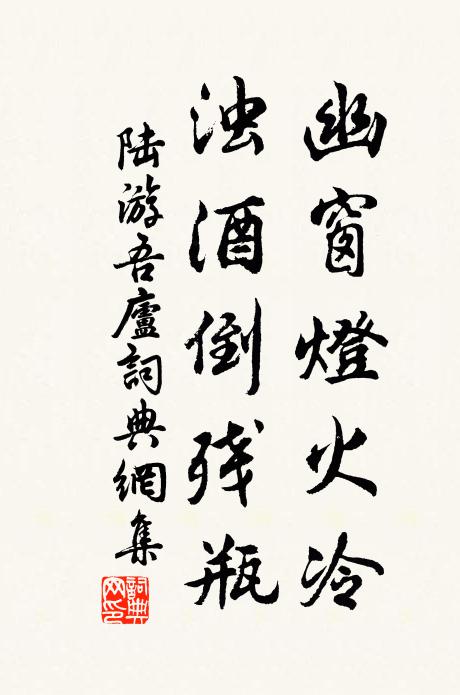 幽窗燈火冷
浊酒倒残瓶
陆游吾廬詞典網集
詞典網印